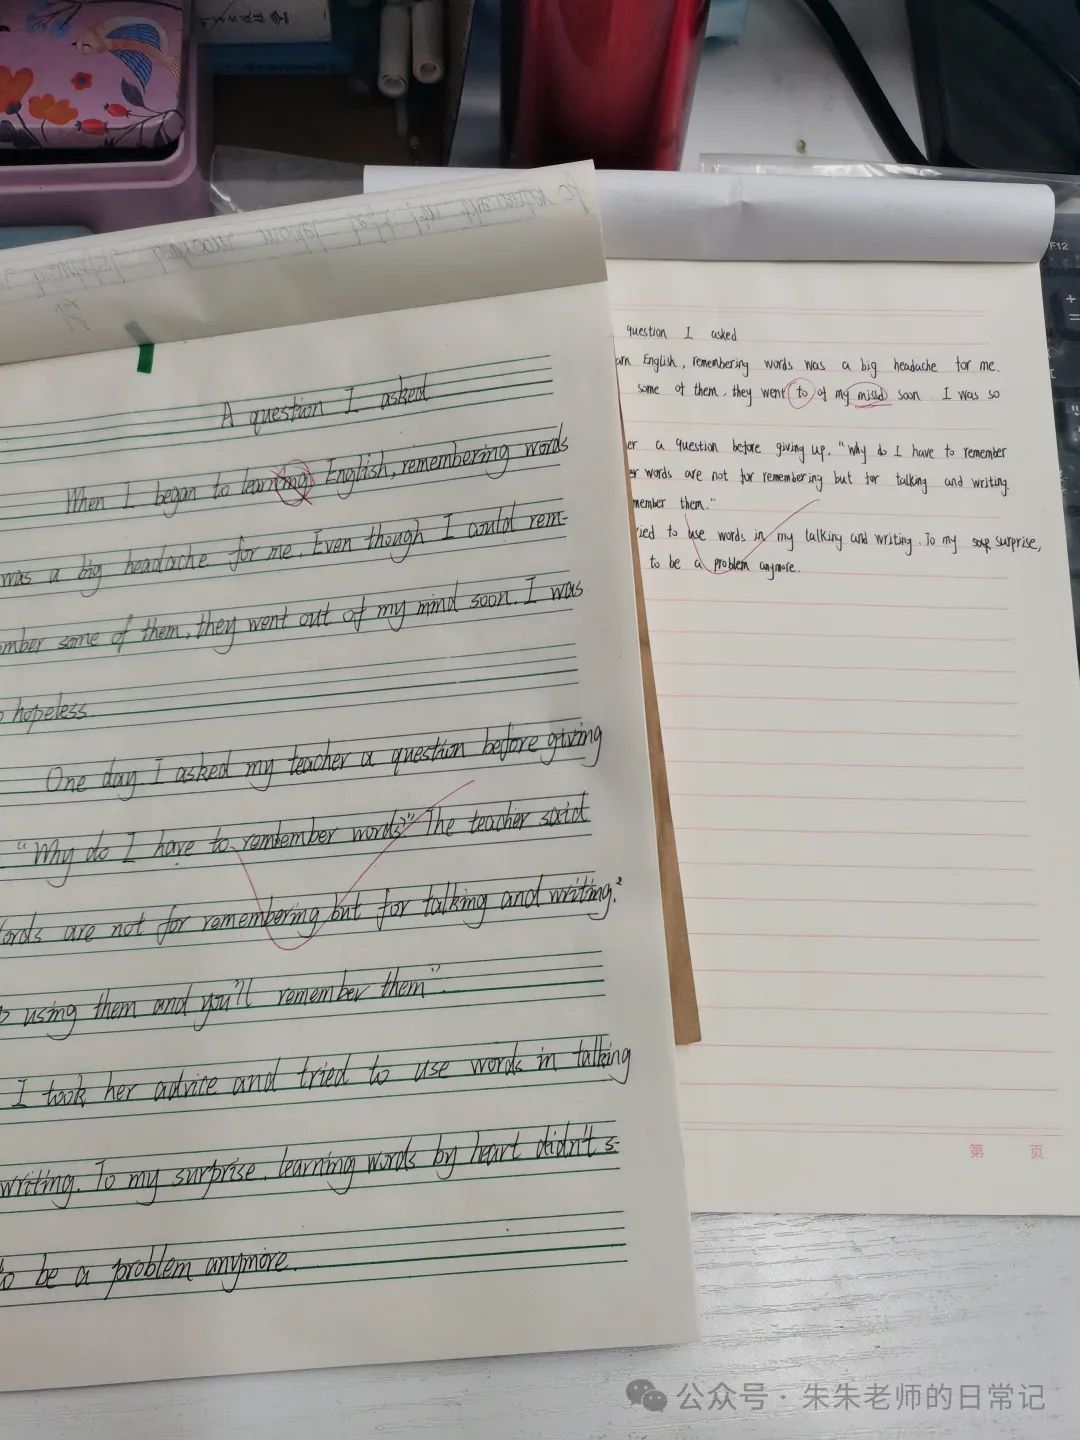 A question I asked
When I began to learning English, remembering words
was a big headache for me. Even though I could rem-
ember some of them, they went out of my mind soon. I was
hopeless.
One day I asked my teacher a question before giving
"Why do I have to remember words?" The teacher said
words are not for remembering but for talking and writing.
using them and you'll remember them".
I took her advice and tried to use words in talking
writing. To my surprise, learning words by heart didn't s-
to be a problem anymore.
question I asked
English, remembering words was a big headache for me.
some of them, they went to of my soon. I was so
a question before giving up. "Why do I have to remember
words are not for remembering but for talking and writing.
them."
to use words in my talking and writing. To my surprise,
to be a problem anymore.
第 页
F12
公众号 · 朱朱老师的日常记